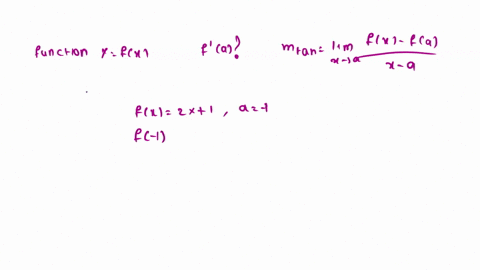 function y=f(x) f'(a)? mtan= lim x→a f(x)-f(a) / x-a
f(x)= 2x+1 , a=-1
f(-1)